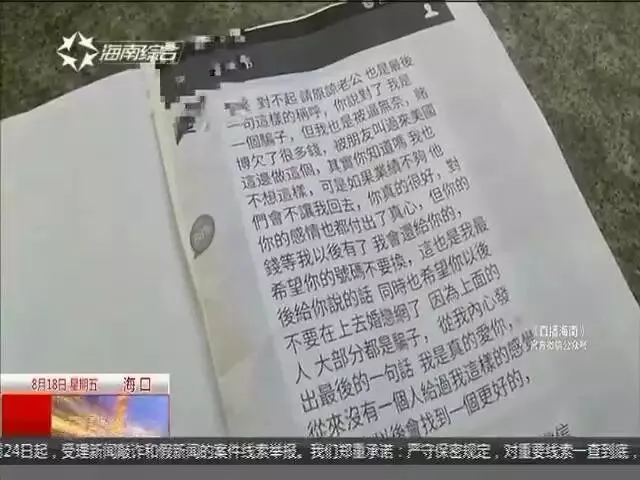 海南综合
對不起 請原諒老公 也是最後
一句這樣的稱呼，你說對了 我是
一個騙子，但我也是被逼無奈，賭
博欠了很多錢，被朋友叫過來美國
這邊做這個，其實你知道嗎 我也
不想這樣，可是如果業績不夠 他
們會不讓我回去，你真的很好，對
你的感情也都付出了真心，但你的
錢等我以後有了 我會還給你的，
希望你的號碼不要換，這也是我最
後給你說的話 同時也希望你以後
不要在上去婚戀網了 因為上面的
人 大部分都是騙子，從我內心發
出最後的一句話 我是真的愛你，
從來沒有一個人給過我這樣的感覺
以後會找到一個更好的，
《直播海南》
官方微信公众号
8月18日 星期五 海口
24日起，受理新闻敲诈和假新闻的案件线索举报。我们郑重承诺：严守保密规定，对重要线索一查到底，